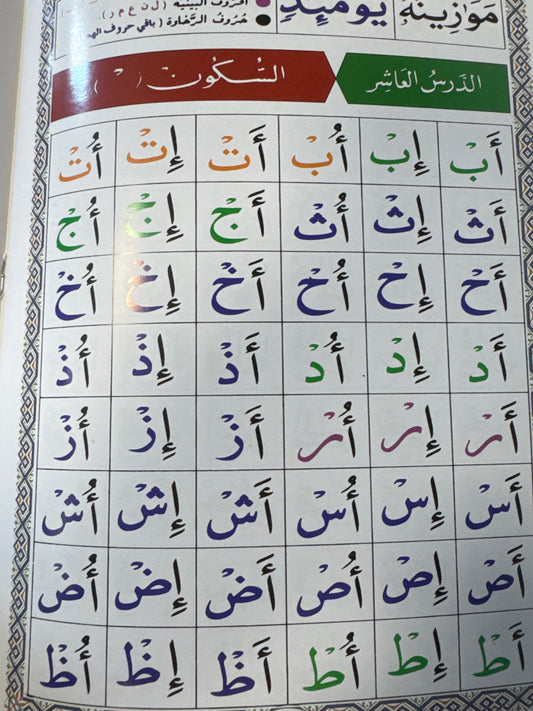 مَوَازِينُهُ يَوْمَئِذٍ
البينية ( ل ن ع م ر ).
حُرُوفُ الرَّخَاوَة ( باقي حروف
الدَّرسُ العَاشِر السُّكُونْ ( ْ )
أَبْ إِبْ أُبْ أَتْ إِتْ أُتْ
أَثْ إِثْ أُثْ أَجْ إِجْ أُجْ
أَحْ إِحْ أُحْ أَخْ إِخْ أُخْ
أَدْ إِدْ أُدْ أَذْ إِذْ أُذْ
أَرْ إِرْ أُرْ أَزْ إِزْ أُزْ
أَسْ إِسْ أُسْ أَشْ إِشْ أُشْ
أَصْ إِصْ أُصْ أَضْ إِضْ أُضْ
أَطْ إِطْ أُطْ أَظْ إِظْ أُظْ